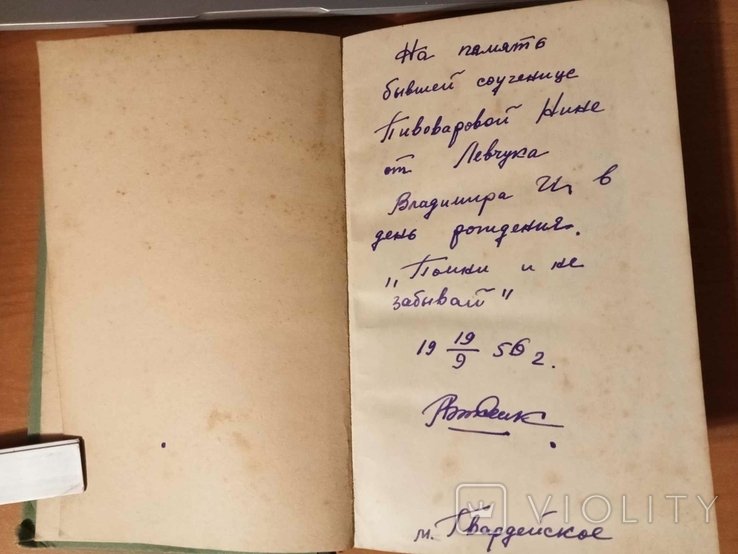 На память
бывшей соученице
Пивоваровой Нине
от Левчука
Владимира И, в
день рождения.
„Помни и не
забывай"
19 19/9 56 г.
м. Гвардейское
VIOLITY